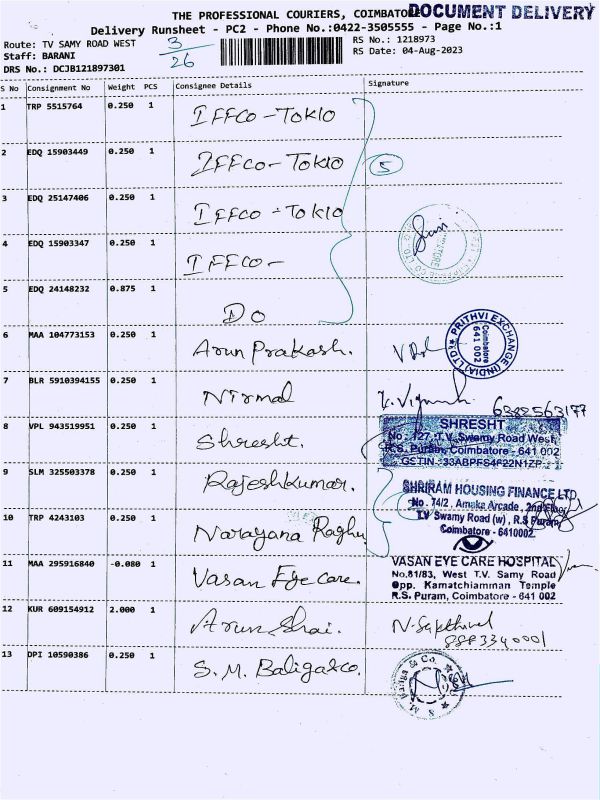 THE PROFESSIONAL COURIERS, COIMBATORE
DOCUMENT DELIVERY
Delivery Runsheet - PC2 - Phone No.:0422-3505555 - Page No.:1
Route: TV SAMY ROAD WEST
3/26
RS No.: 1218973
Staff: BARANI
RS Date: 04-Aug-2023
DRS No.: DCJB121897301
S No Consignment No Weight PCS Consignee Details Signature
1 TRP 5515764 0.250 1 IFFCO-TOKIO
2 EDQ 15903449 0.250 1 IFFCO-TOKIO
5
3 EDQ 25147406 0.250 1 IFFCO-TOKIO
4 EDQ 15903347 0.250 1 IFFCO-
5 EDQ 24148232 0.875 1 DO
6 MAA 104773153 1 0.250 Arun Prakash.
PRITHVI EXCHANGE (INDIA) LTD
Coimbatore
641 002
7 BLR 5910394155 0.250 1 Nirmal
K. Vignesh
6382563177
8 VPL 943519951 0.250 1 Shresht.
SHRESHT
No: 127, T.V. Swamy Road West,
R.S. Puram, Coimbatore - 641 002
9 SLM 325503378 0.250 1 Rajeshkumar.
SHRIRAM HOUSING FINANCE LTD.
No. 74/2, Amaka Arcade, 2nd Floor
T.V Swamy Road (w), R.S Puram,
Coimbatore - 6410002.
10 TRP 4243103 0.250 1 Narayana Raghu
11 MAA 295916840 -0.080 1 Vasan Eye care.
VASAN EYE CARE HOSPITAL
No.81/83, West T.V. Samy Road
Opp. Kamatchiamman Temple
R.S. Puram, Coimbatore - 641 002
12 KUR 609154912 2.000 1 Arun Shai.
N. Sakthivel
8883340001
13 DPI 10590386 0.250 1 S.M. Baliga&co.